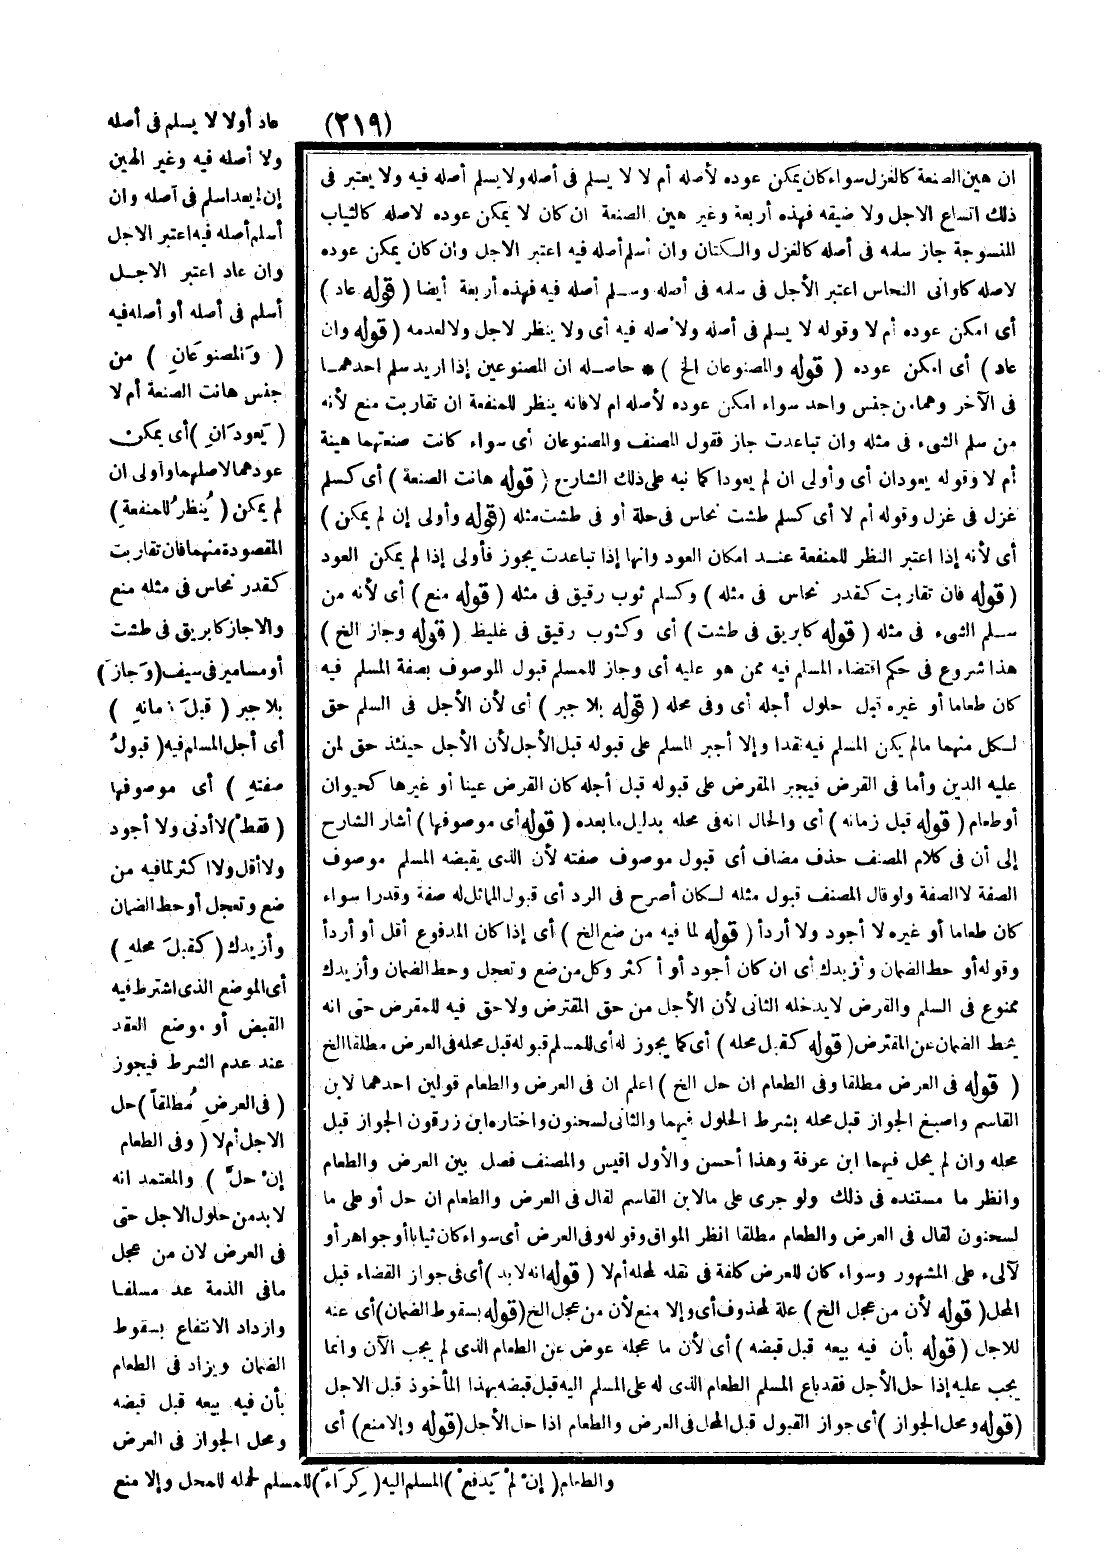 (٢١٩)
ان هين الصنعة كالغزل سواء كان يمكن عوده لأصله أم لا لا يسلم فى أصله ولا يسلم أصله فيه ولا يعتبر فى
ذلك اتساع الاجل ولا ضيقه فهذه أربعة وغير هين الصنعة ان كان لا يمكن عوده لاصله كالثياب
المنسوجة جاز سلمه فى أصله كالغزل والكتان وان أسلم أصله فيه اعتبر الاجل وان كان يمكن عوده
لاصله كاوانى النحاس اعتبر الأجل فى سلمه فى أصله وسلم أصله فيه فهذه أربعة أيضا (قوله عاد)
أى امكن عوده أم لا وقوله لا يسلم فى أصله ولا أصله فيه أى ولا ينظر لاجل ولا لعدمه (قوله وان
عاد) أى امكن عوده (قوله والمصنوعان الخ) * حاصله ان المصنوعين إذا اريد سلم احدهما
فى الآخر وهما من جنس واحد سواء امكن عوده لأصله ام لا فانه ينظر للمنفعة ان تقاربت منع لأنه
من سلم الشىء فى مثله وان تباعدت جاز فقول المصنف والمصنوعان أى سواء كانت صنعتهما هينة
أم لا وقوله يعودان أى وأولى ان لم يعودا كما نبه على ذلك الشارح (قوله هانت الصنعة) أى كسلم
غزل فى غزل وقوله أم لا أى كسلم طشت نحاس فى حلة أو فى طشت مثله (قوله وأولى إن لم يمكن)
أى لأنه إذا اعتبر النظر للمنفعة عند امكان العود وانها إذا تباعدت يجوز فأولى إذا لم يمكن العود
(قوله فان تقاربت كقدر نحاس فى مثله) وكسلم ثوب رقيق فى مثله (قوله منع) أى لأنه من
سلم الشىء فى مثله (قوله كابريق فى طشت) أى وكثوب رقيق فى غليظ (قوله وجاز الخ)
هذا شروع فى حكم اقتضاء المسلم فيه ممن هو عليه أى وجاز للمسلم قبول الموصوف بصفة المسلم فيه
كان طعاما أو غيره قبل حلول أجله أى وفى محله (قوله بلا جبر) أى لأن الأجل فى السلم حق
لكل منهما مالم يكن المسلم فيه نقدا وإلا أجبر المسلم على قبوله قبل الأجل لأن الأجل حينئذ حق لمن
عليه الدين وأما فى القرض فيجبر المقرض على قبوله قبل أجله كان القرض عينا أو غيرها كحيوان
أو طعام (قوله قبل زمانه) أى والحال انه فى محله بدليل ما بعده (قوله أى موصوفها) أشار الشارح
إلى أن فى كلام المصنف حذف مضاف أى قبول موصوف صفته لأن الذى يقبضه المسلم موصوف
الصفة لا الصفة ولو قال المصنف قبول مثله لكان أصرح فى الرد أى قبول المماثل له صفة وقدرا سواء
كان طعاما أو غيره لا أجود ولا أردأ (قوله لما فيه من ضع الخ) أى إذا كان المدفوع أقل أو أردأ
وقوله أو حط الضمان وأزيدك أى ان كان أجود أو أكثر وكل من ضع وتعجل وحط الضمان وأزيدك
ممنوع فى السلم والقرض لا يدخله الثانى لأن الأجل من حق المقترض ولا حق فيه للمقرض حتى انه
يحط الضمان عن المقترض (قوله كقبل محله) أى كما يجوز له أى للمسلم قبوله قبل محله فى العرض مطلقا الخ
(قوله فى العرض مطلقا وفى الطعام ان حل الخ) اعلم ان فى العرض والطعام قولين احدهما لابن
القاسم واصبغ الجواز قبل محله بشرط الحلول فيهما والثانى لسحنون واختاره ابن زرقون الجواز قبل
محله وان لم يحل فيهما ابن عرفة وهذا أحسن والأول اقيس والمصنف فصل بين العرض والطعام
وانظر ما مستنده فى ذلك ولو جرى على ما لابن القاسم لقال فى العرض والطعام ان حل أو على ما
لسحنون لقال فى العرض والطعام مطلقا انظر المواق وقوله وفى العرض أى سواء كان ثيابا أو جواهر أو
لآلىء على المشهور وسواء كان للعرض كلفة فى نقله لمحله أم لا (قوله انه لابد) أى فى جواز القضاء قبل
المحل (قوله لأن من عجل الخ) علة لمحذوف أى وإلا منع لأن من عجل الخ (قوله بسقوط الضمان) أى عنه
للاجل (قوله بأن فيه بيعه قبل قبضه) أى لأن ما عجله عوض عن الطعام الذى لم يجب الآن وانما
يجب عليه إذا حل الأجل فقد باع المسلم الطعام الذى له على المسلم اليه قبل قبضه بهذا المأخوذ قبل الاجل
(قوله ومحل الجواز) أى جواز القبول قبل المحل فى العرض والطعام اذا حل الأجل (قوله وإلا منع) أى
عاد أولا لا يسلم فى أصله
ولا أصله فيه وغير الهين
إن لم يعد اسلم فى أصله وان
أسلم أصله فيه اعتبر الاجل
وان عاد اعتبر الاجل
أسلم فى أصله أو أصله فيه
(وَالمصنوعَانِ) من
جنس هانت الصنعة أم لا
(يَعودَانِ) أى يمكن
عودهما لاصلهما وأولى ان
لم يمكن (يُنظرُ للمنفعةِ)
المقصودة منهما فان تقاربت
كقدر نحاس فى مثله منع
والا جاز كابريق فى طشت
أو مسامير فى سيف (وَجازَ)
بلا جبر (قبلَ زمانهِ)
أى أجل المسلم فيه (قبولُ
صفتهِ) أى موصوفها
(فقطْ) لا أدنى ولا أجود
ولا أقل ولا اكثر لما فيه من
ضع وتعجل أو حط الضمان
وأزيدك (كقبلَ محلهِ)
أى الموضع الذى اشترط فيه
القبض أو موضع العقد
عند عدم الشرط فيجوز
(فى العرضِ مُطلقاً) حل
الاجل أم لا (وفى الطعام
إنْ حلَّ) والمعتمد انه
لا بد من حلول الاجل حتى
فى العرض لان من عجل
ما فى الذمة عد مسلفا
وازداد الانتفاع بسقوط
الضمان ويزاد فى الطعام
بأن فيه بيعه قبل قبضه
ومحل الجواز فى العرض
والطعام (إنْ لمْ يَدفعْ) المسلم اليه (كِرَاءً) للمسلم لحمله للمحل وإلا منع